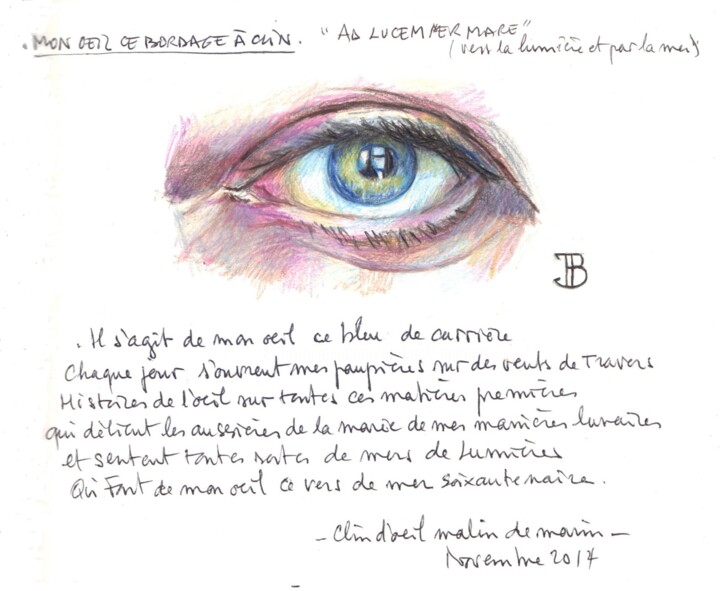 . MON OEIL CE BORDAGE À CLIN. "AD LUCEM PER MARE"
(vers la lumière et par la mer)
JB
. Il s'agit de mon oeil ce bleu de carrière
Chaque jour s'ouvrent mes paupières sur des vents de Travers
Histoires de l'oeil sur toutes ces matières premières
qui délient les aussières de la marée de mes manières lunaires
et sentent toutes sortes de mers de Lumières
Qui Font de mon oeil ce vers de mer soixantenaire.
- Clin d'oeil malin de marin -
Novembre 2017